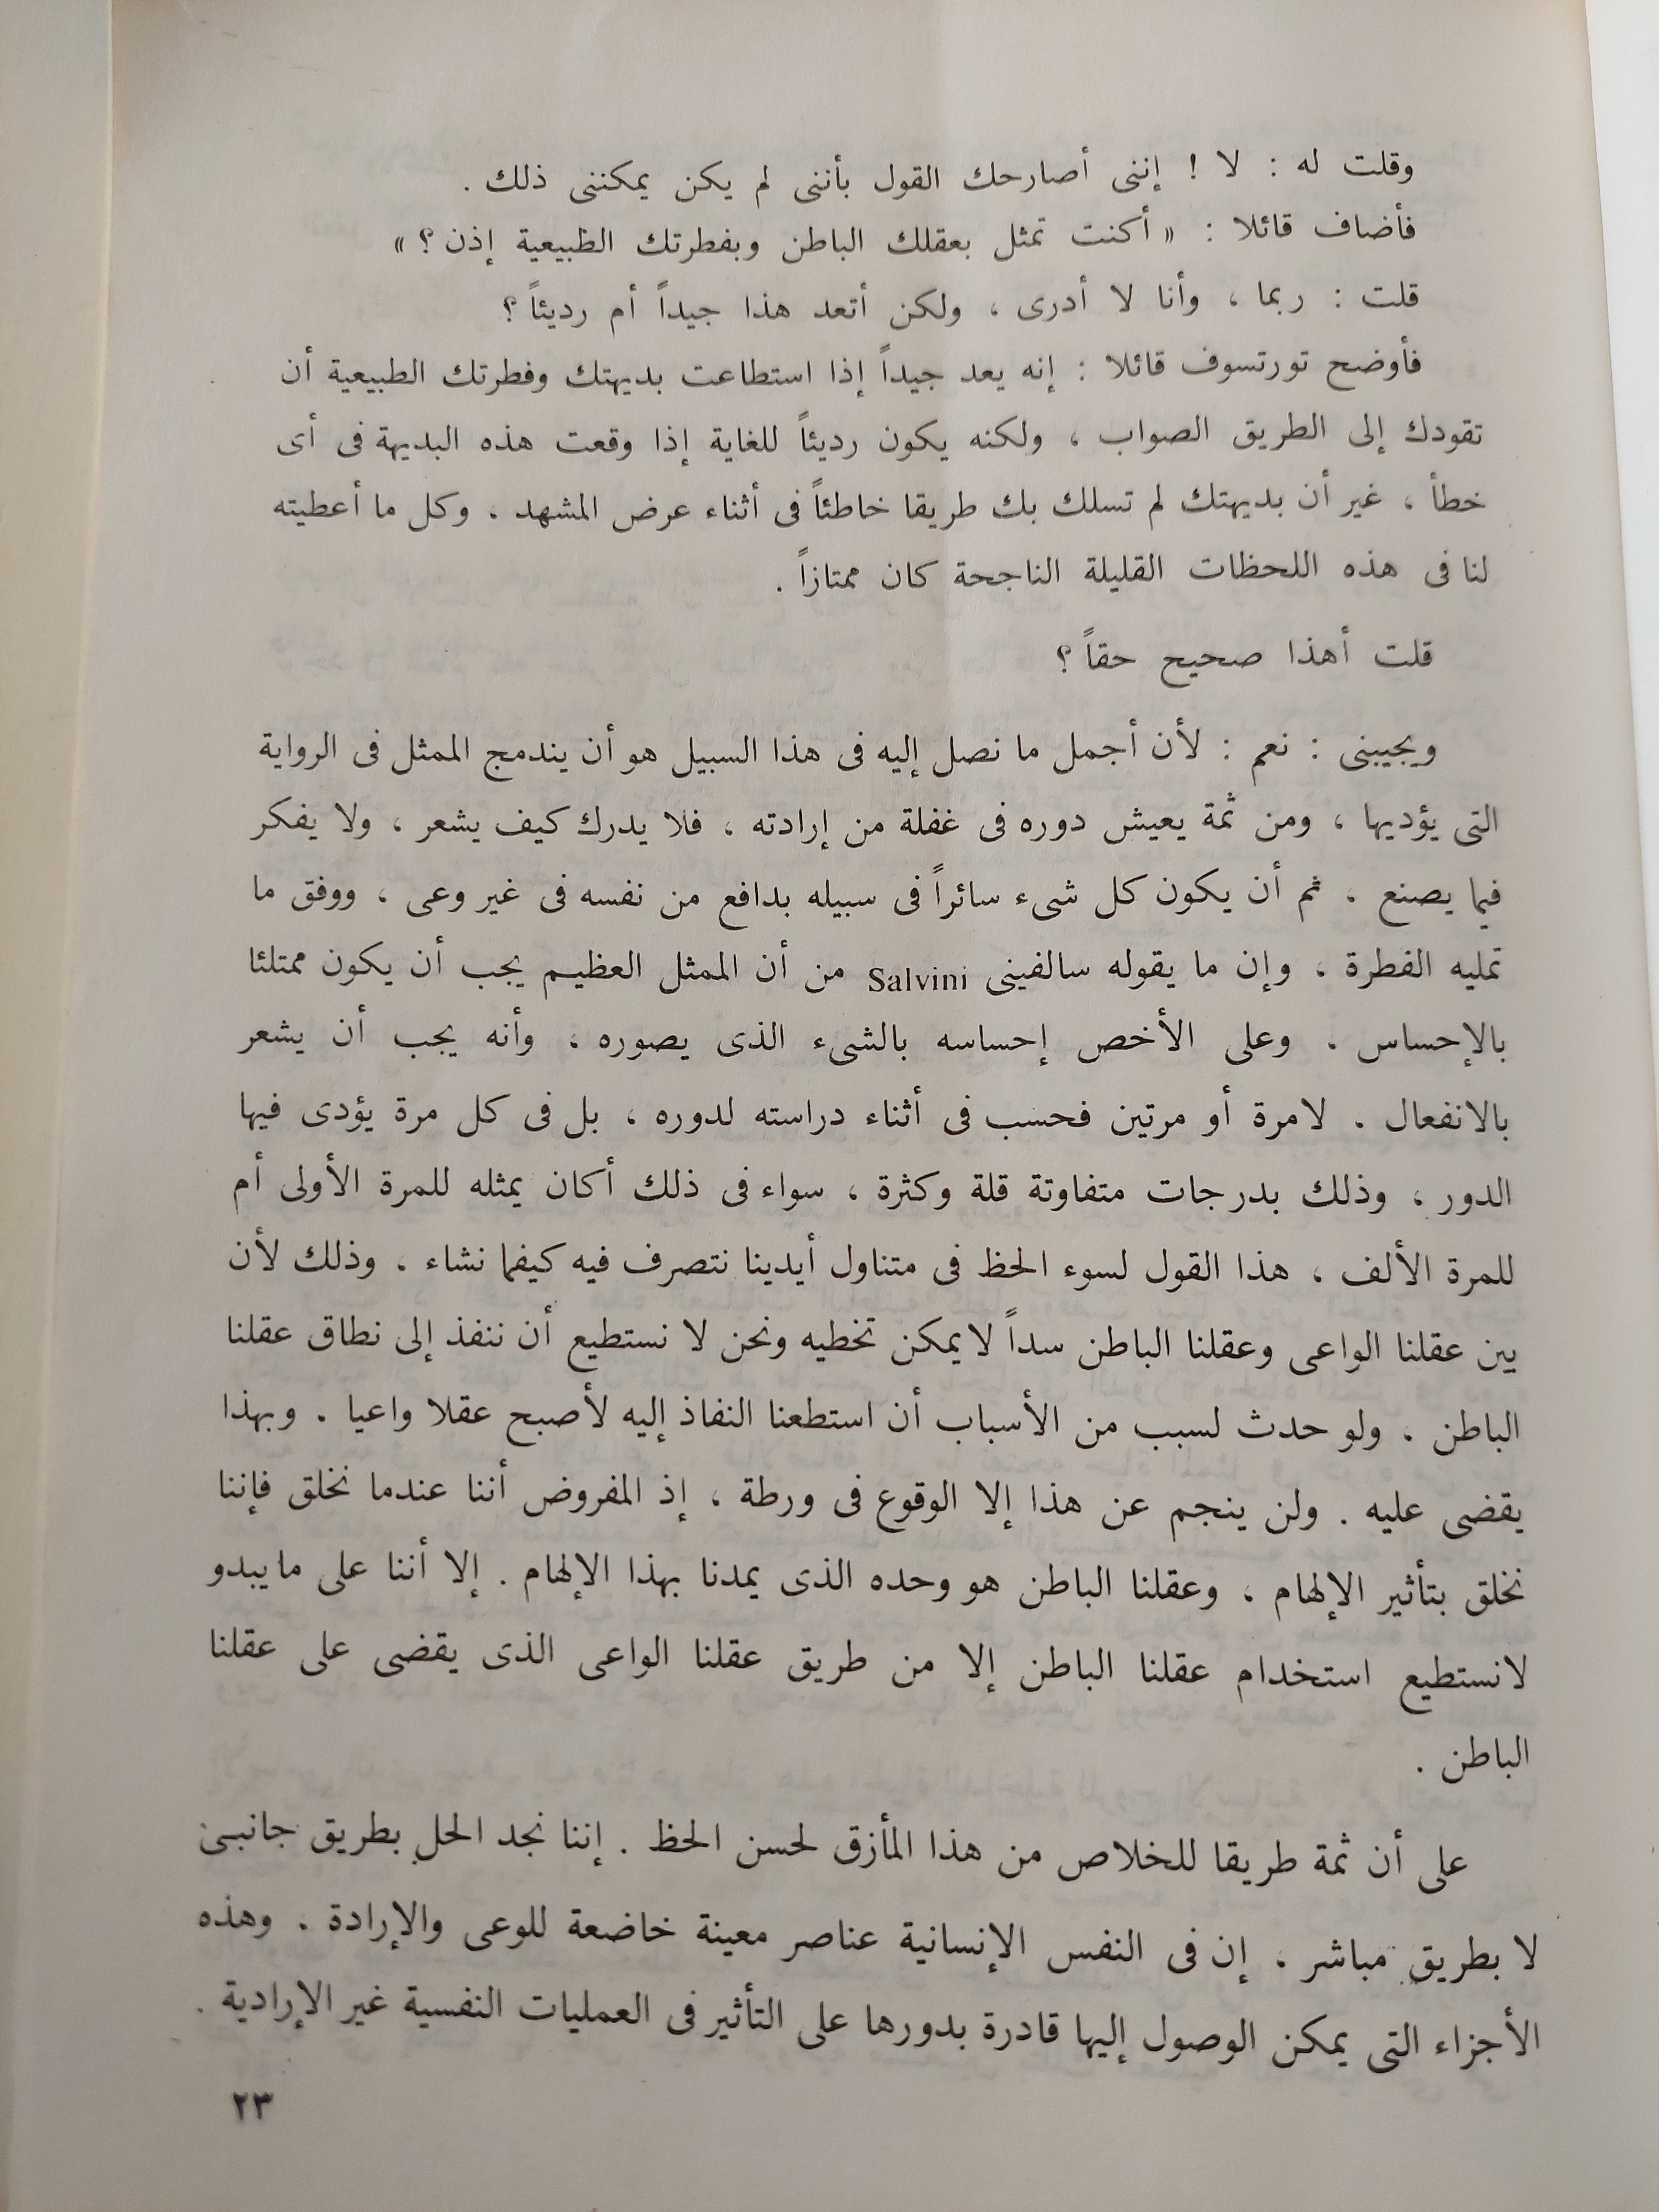 وقلت له : لا ! إننى أصارحك القول بأننى لم يكن يمكننى ذلك .
فأضاف قائلا : « أكنت تمثل بعقلك الباطن وبفطرتك الطبيعية إذن ؟ »
قلت : ربما ، وأنا لا أدرى ، ولكن أتعد هذا جيداً أم رديئاً ؟
فأوضح تورتسوف قائلا : إنه يعد جيداً إذا استطاعت بديهتك وفطرتك الطبيعية أن
تقودك إلى الطريق الصواب ، ولكنه يكون رديئاً للغاية إذا وقعت هذه البديهة فى أى
خطأ ، غير أن بديهتك لم تسلك بك طريقا خاطئاً فى أثناء عرض المشهد ، وكل ما أعطيته
لنا فى هذه اللحظات القليلة الناجحة كان ممتازاً .
قلت أهذا صحيح حقاً ؟
ويجيبنى : نعم : لأن أجمل ما نصل إليه فى هذا السبيل هو أن يندمج الممثل فى الرواية
التى يؤديها ، ومن ثمة يعيش دوره فى غفلة من إرادته ، فلا يدرك كيف يشعر ، ولا يفكر
فيما يصنع . ثم أن يكون كل شىء سائراً فى سبيله بدافع من نفسه فى غير وعى ، ووفق ما
تمليه الفطرة ، وإن ما يقوله سالفينى Salvini من أن الممثل العظيم يجب أن يكون ممتلئا
بالإحساس . وعلى الأخص إحساسه بالشىء الذى يصوره ، وأنه يجب أن يشعر
بالانفعال . لامرة أو مرتين فحسب فى أثناء دراسته لدوره ، بل فى كل مرة يؤدى فيها
الدور ، وذلك بدرجات متفاوتة قلة وكثرة ، سواء فى ذلك أكان يمثله للمرة الأولى أم
للمرة الألف ، هذا القول لسوء الحظ فى متناول أيدينا نتصرف فيه كيفما نشاء . وذلك لأن
بين عقلنا الواعى وعقلنا الباطن سداً لايمكن تخطيه ونحن لا نستطيع أن ننفذ إلى نطاق عقلنا
الباطن . ولو حدث لسبب من الأسباب أن استطعنا النفاذ إليه لأصبح عقلا واعيا . وبهذا
يقضى عليه . ولن ينجم عن هذا إلا الوقوع فى ورطة ، إذ المفروض أننا عندما نخلق فإننا
نخلق بتأثير الإلهام ، وعقلنا الباطن هو وحده الذى يمدنا بهذا الإلهام . إلا أننا على مايبدو
لانستطيع استخدام عقلنا الباطن إلا من طريق عقلنا الواعى الذى يقضى على عقلنا
الباطن .
على أن ثمة طريقا للخلاص من هذا المأزق لحسن الحظ . إننا نجد الحل بطريق جانبى
لا بطريق مباشر ، إن فى النفس الإنسانية عناصر معينة خاضعة للوعى والإرادة . وهذه
الأجزاء التى يمكن الوصول إليها قادرة بدورها على التأثير فى العمليات النفسية غير الإرادية .
٢٣